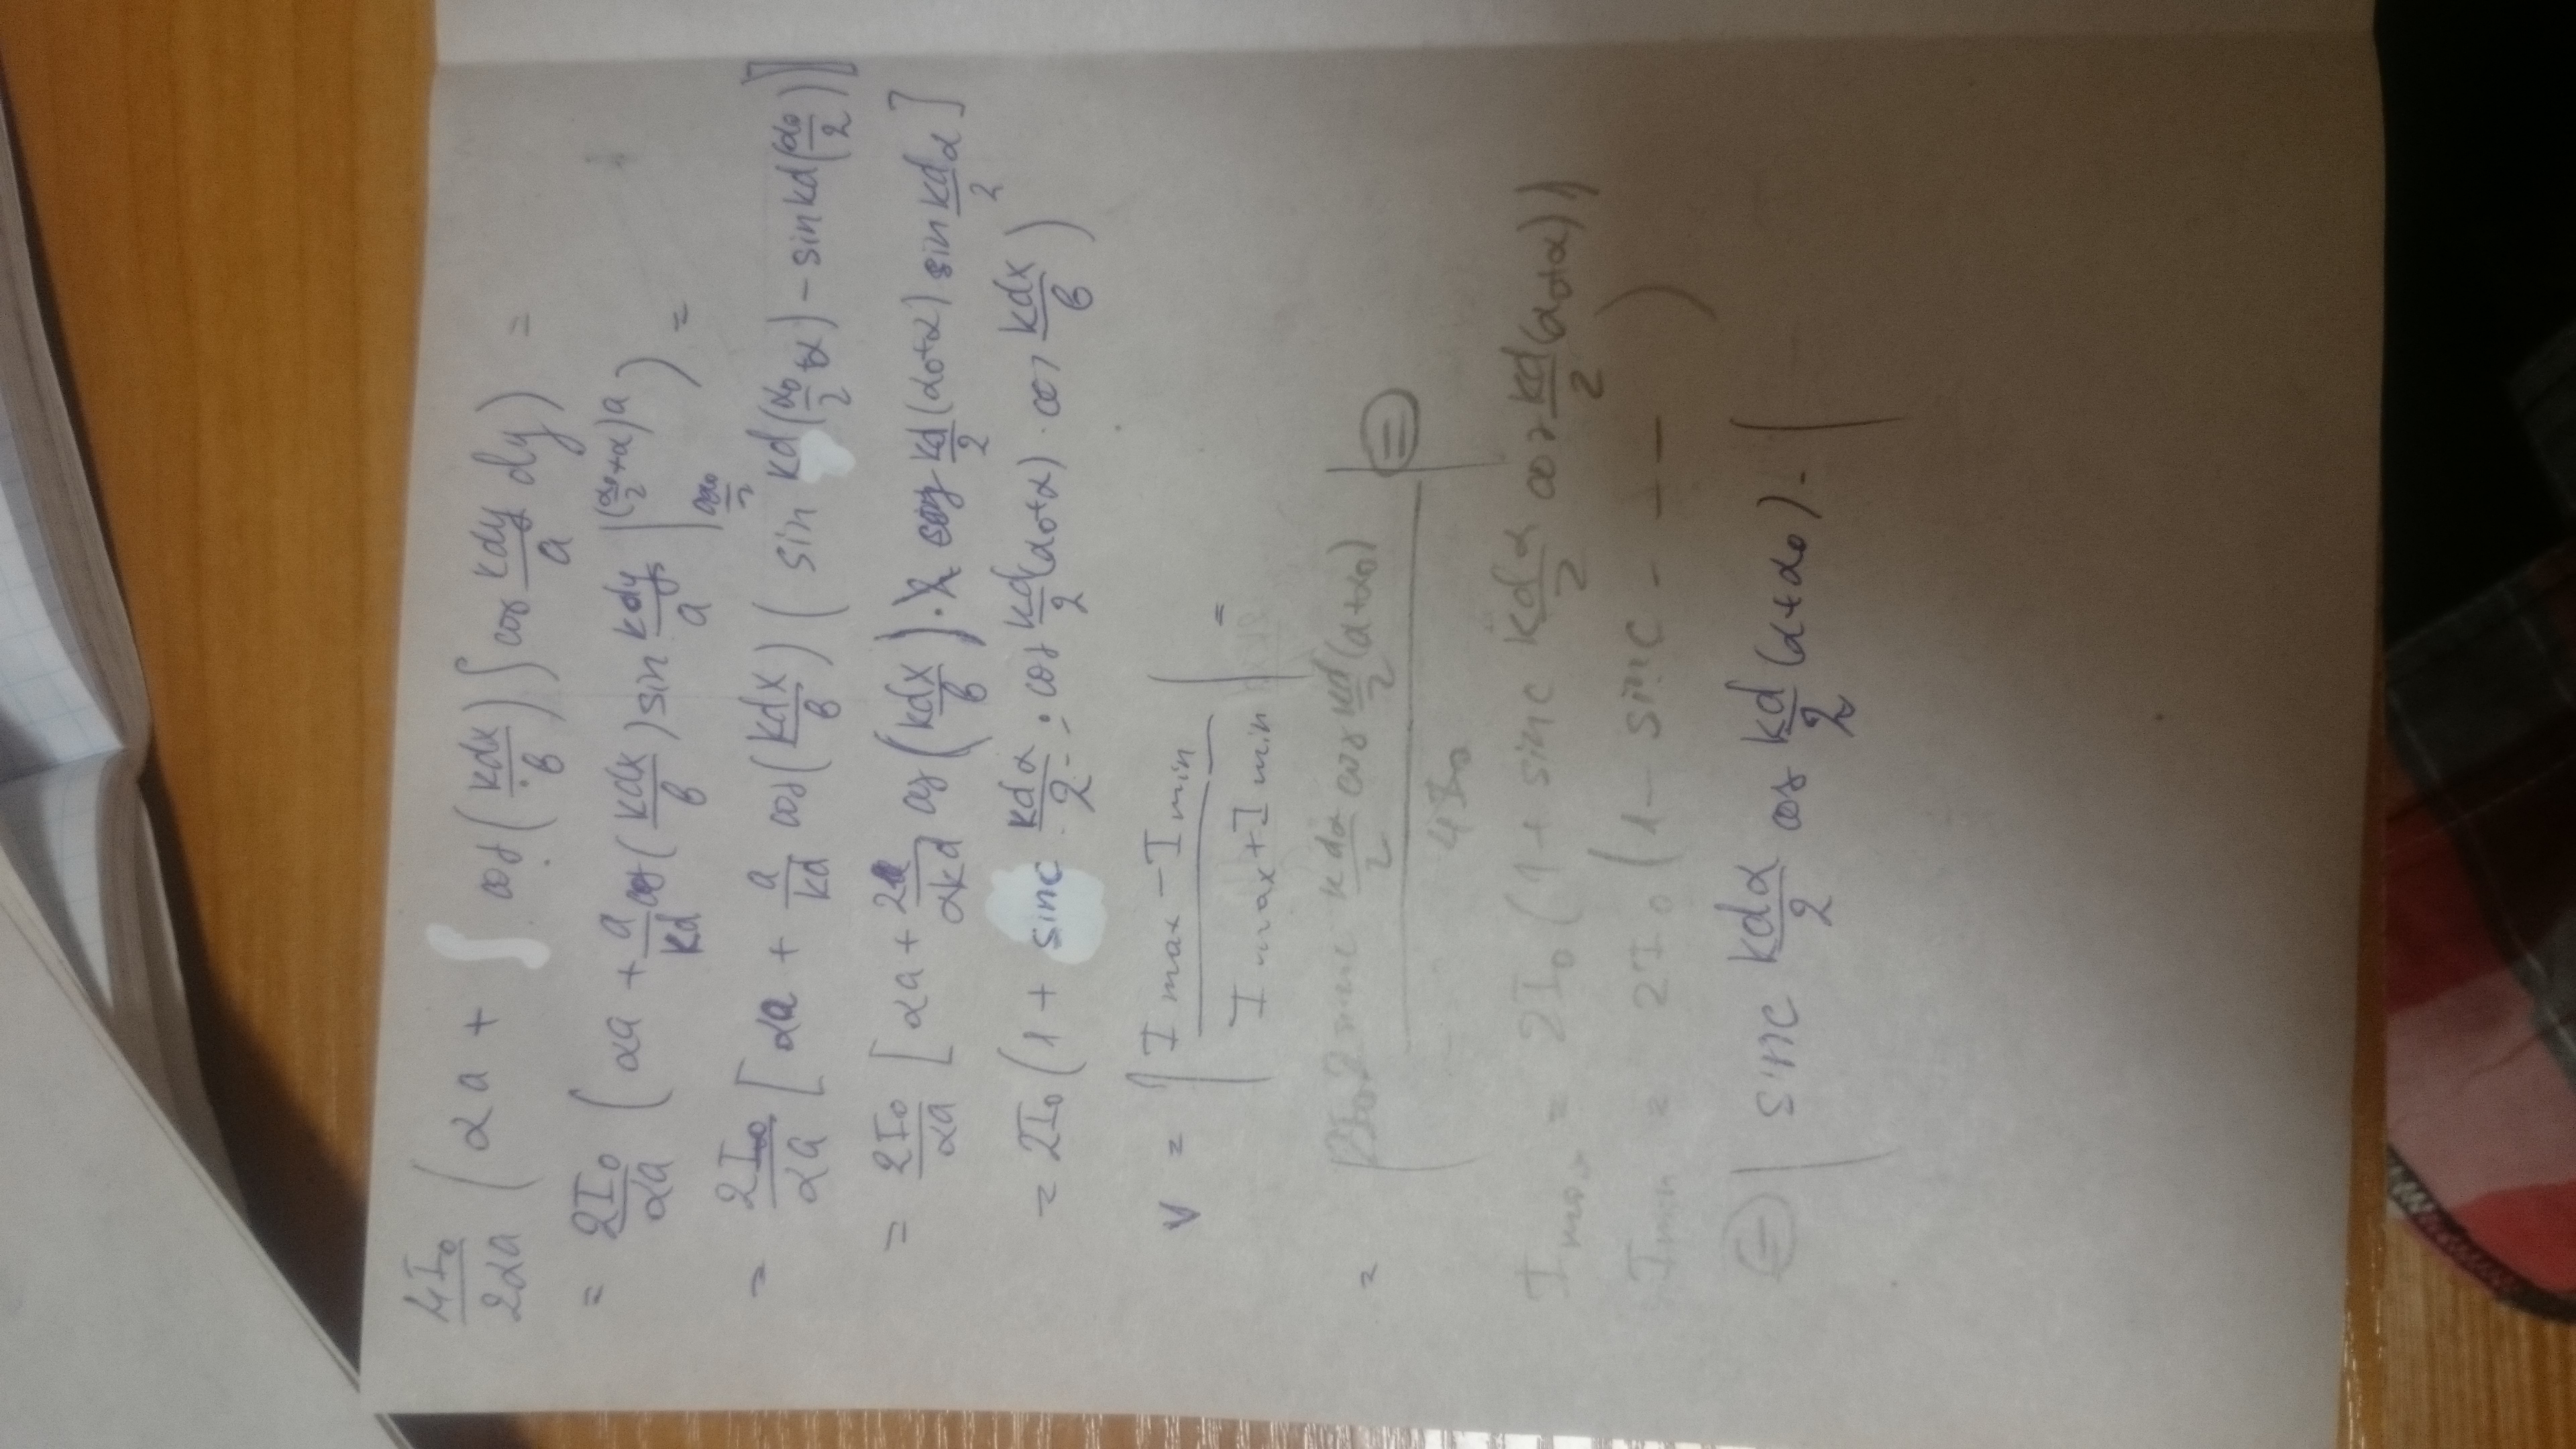 4I₀/2αa (αa + ∫ cos(kdx/b) ∫ cos kdy/a dy) =
= 2I₀/αa (αa + a/kd cos(kdx/b) sin kdy/a |_{aα₀/2}^{(α₀/2+α)a}) =
= 2I₀/αa [αa + a/kd cos(kdx/b) (sin kd(α₀/2+α) − sin kd(α₀/2))]
= 2I₀/αa [αa + 2a/αkd cos(kdx/b) · cos kd/2 (α₀+α) sin kd/2 α]
= 2I₀ (1 + sinc kdα/2 · cos kd/2 (α₀+α) · cos kdx/b)
V = |(I max − I min)/(I max + I min)| =
= |2I₀ 2 sinc kdα/2 cos kd/2 (α+α₀) / 4I₀| =
I max = 2I₀ (1 + sinc kdα/2 cos kd/2 (α₀+α))
I min = 2I₀ (1 − sinc − − −)
= |sinc kdα/2 cos kd/2 (α+α₀).|